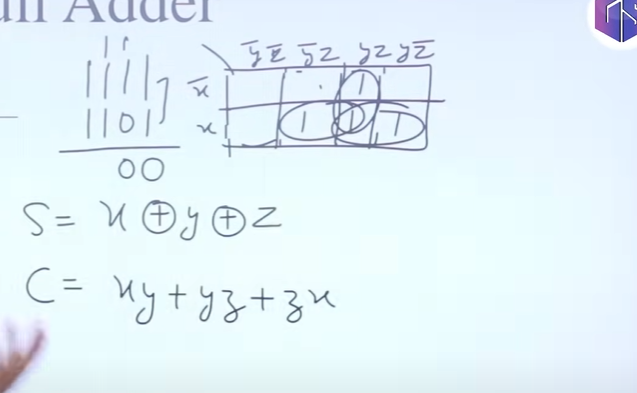 Adder
1 1
1111
1101
00
y̅z̅ y̅z yz yz̅
x̅ 1
x 1 1 1
S = x ⊕ y ⊕ z
C = xy + yz + zx